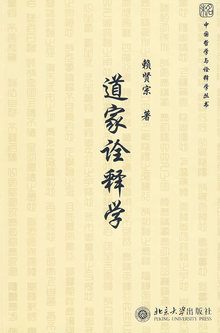 中国哲学与诠释学丛书
赖贤宗 著
道家诠释学
北京大学出版社
PEKING UNIVERSITY PRESS